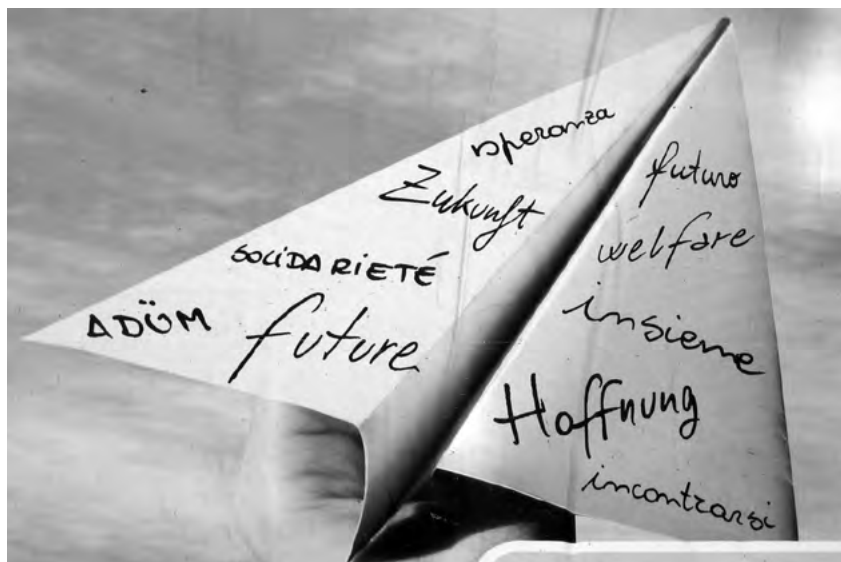 speranza
Zukunft
SOLIDARIETÉ
ADÜM
future
futuro
welfare
insieme
Hoffnung
incontrarsi